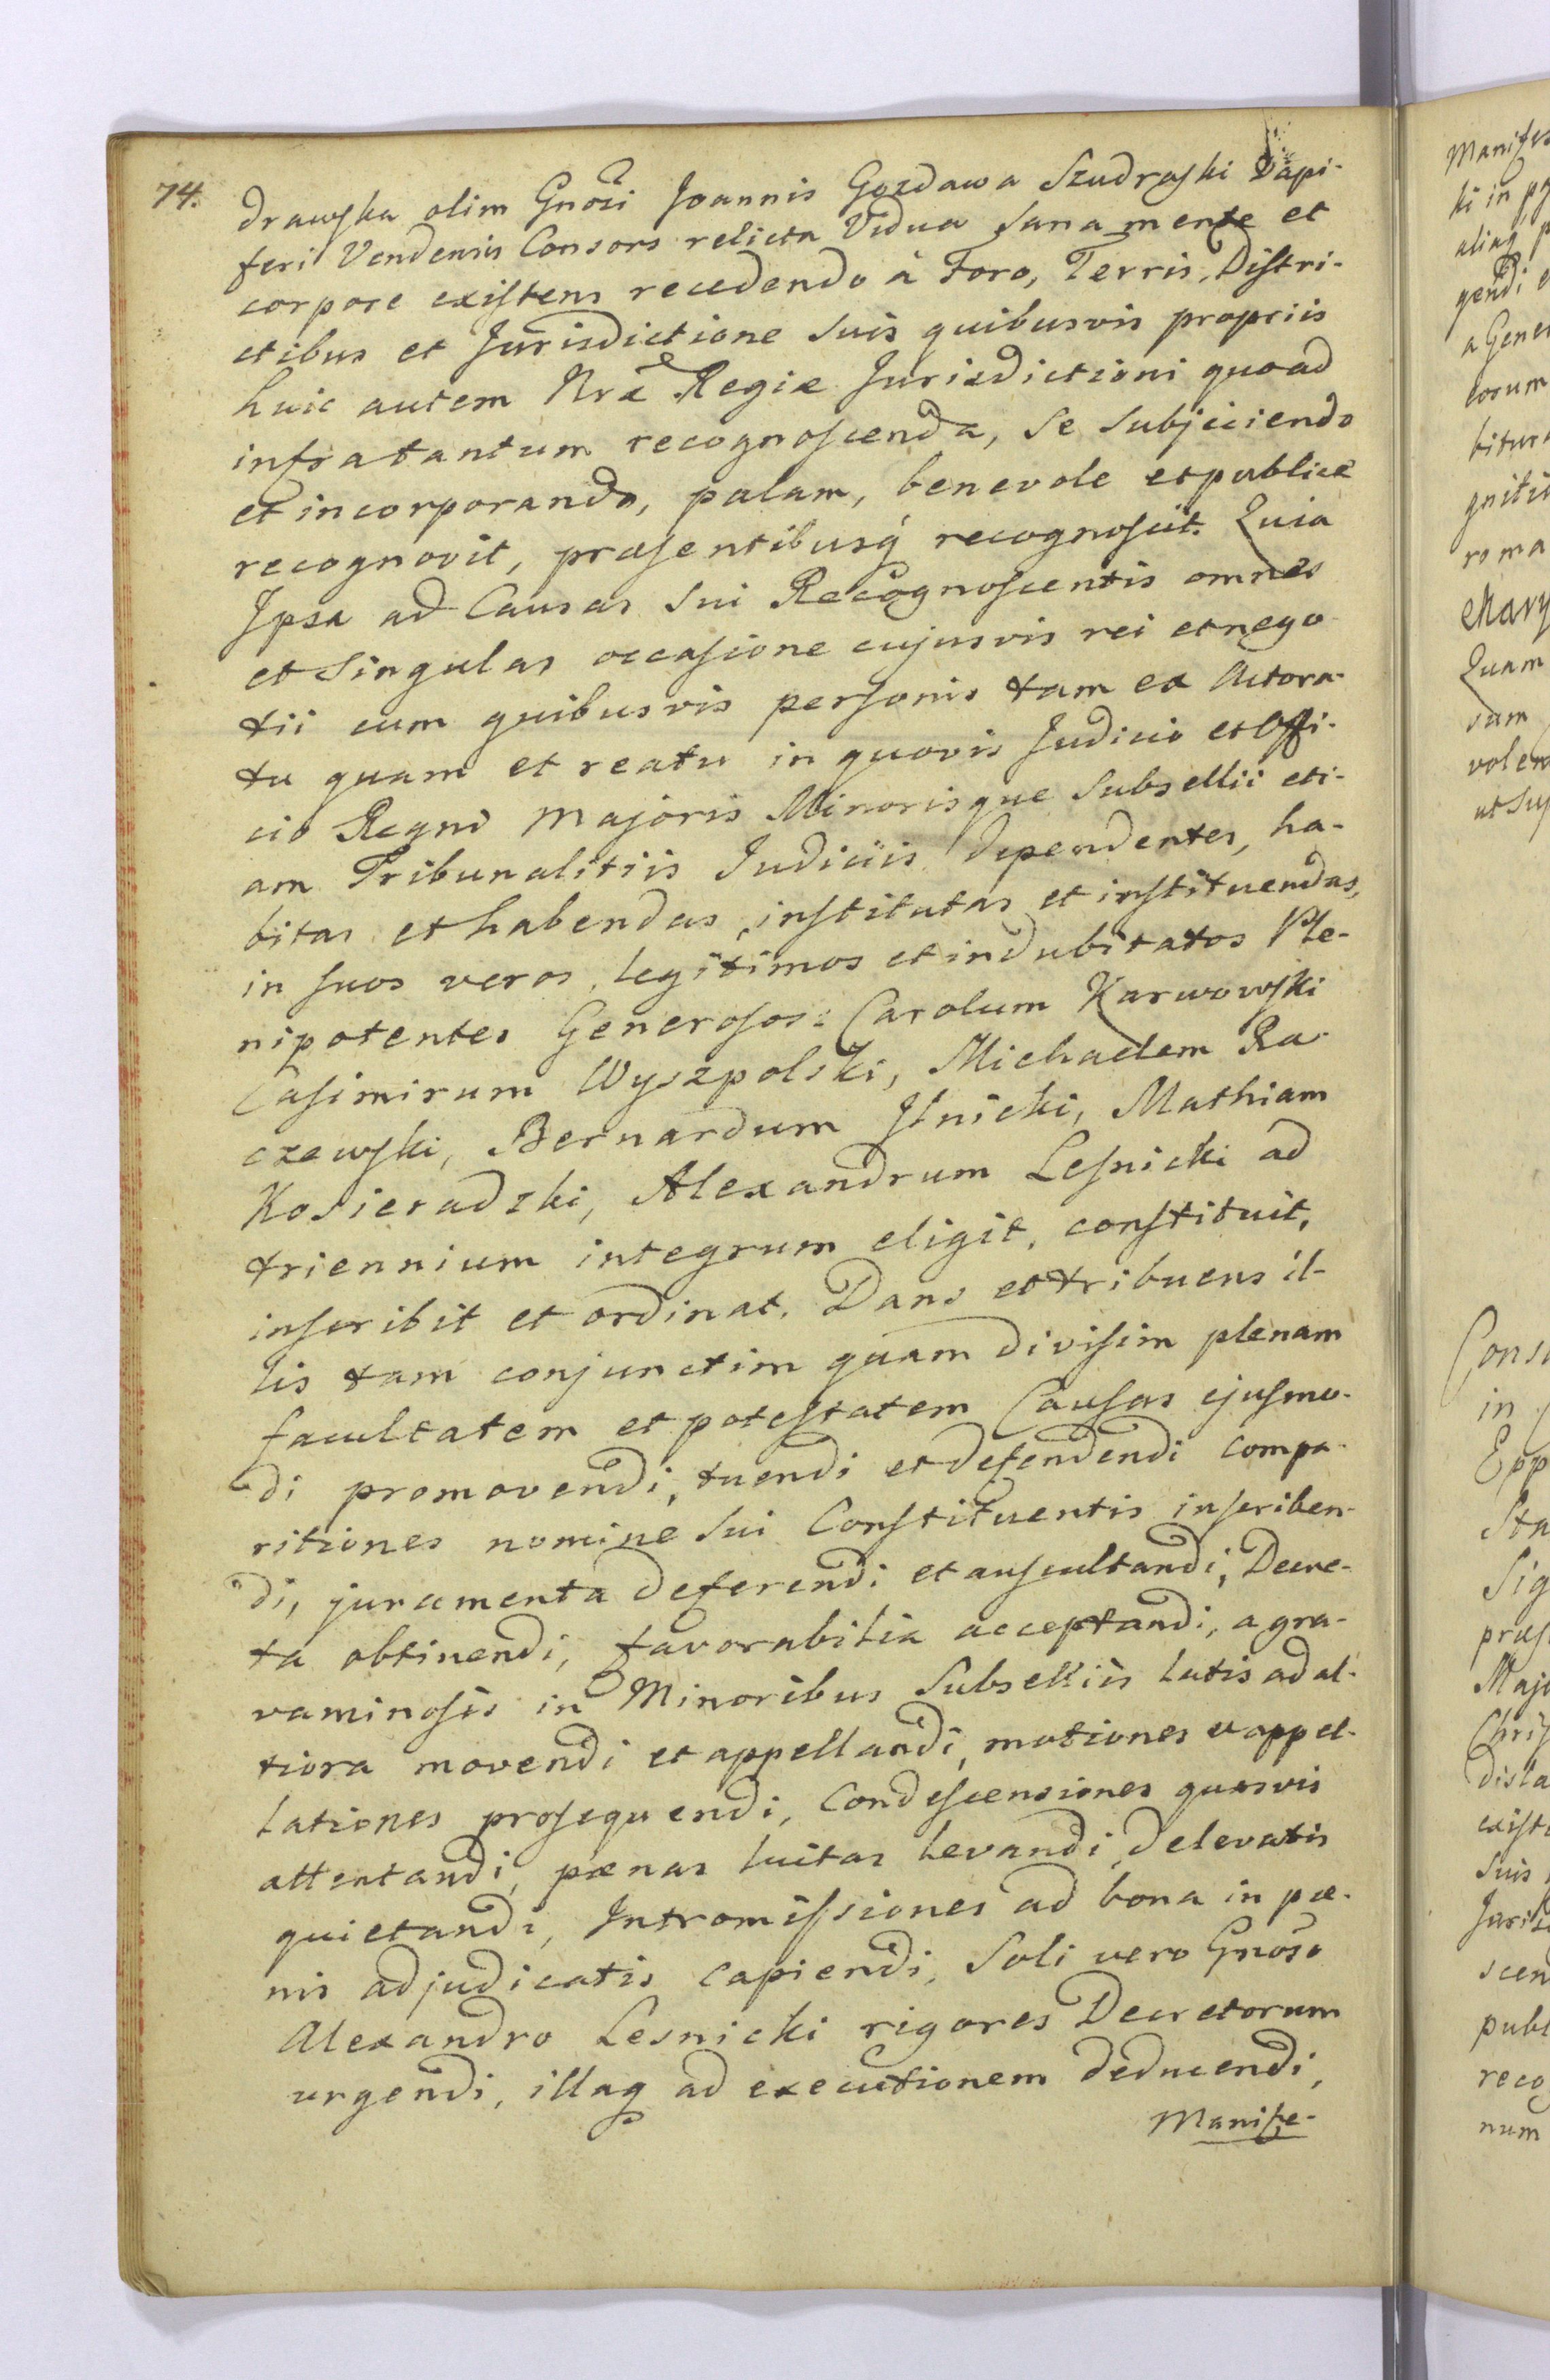 74.
drawska olim Gnosi Joannis Gozdawa Szudraski Dapi-
feri Vendensis Consors relicta Vidua Sana mente et
corpore existens recedendo à Foro, Terris, Distri-
ctibus et Jurisdictione Suis quibusvis propriis
huic autem Nræ Regiæ Jurisdictioni quoad
infra tantum recognoscenda, Se Subjiciendo
et incorporando, palam, benevole et publice
recognovit, præsentibusq recognoscit. Quia
Ipsa ad Causas Sui Recognoscentis omnes
et Singulas occasione cujusvis rei et nego-
tii cum quibusvis personis tam ex Actora-
tu quam et reatu in quovis Judicio et Offi-
cio Regni Majoris Minorisque Subsellii eti-
am Tribunalitiis Judiciis dependentes, ha-
bitas et habendas, institutas et instituendas,
in suos veros, legitimos et indubitatos Ple-
nipotentes Generosos: Carolum Karwowski
Casimirum Wyszpolski, Michaelem Ra-
czewski, Bernardum Ilnicki, Mathiam
Kosieradzki, Alexandrum Lesnicki ad
triennium integrum eligit, constituit,
inscribit et ordinat. Dans et tribuens il-
lis tam conjunctim quam divisim plenam
facultatem et potestatem Causas ejusmo-
di promovendi, tuendi et defendendi compa-
ritiones nomine Sui Constituentis inscriben-
di, juramenta deferendi et auscultandi, Decre-
ta obtinendi, favorabilia acceptandi, a gra-
vaminosis in Minoribus Subselliis latis ad al-
tiora movendi et appellandi, motiones et appel-
lationes prosequendi, Condescensiones quasvis
attentandi, pœnas luitas levandi, de levatis
quietandi, Intromissiones ad bona in pœ-
nis adjudicatis Capiendi, Soli vero Gnoso
Alexandro Lesnicki rigores Decretorum
urgendi, illaq ad executionem deducendi,
Manife-
Manifes
ki in
aliaq p
gendi e
a Gener
eorum
bitur
gniti
roma
Quam
sam
volen
ut Sup
Cons
in
Epp
Sta
Sig
præs
Majo
Chris
disla
existe
Suis
Juris
scen
publ
reco
num